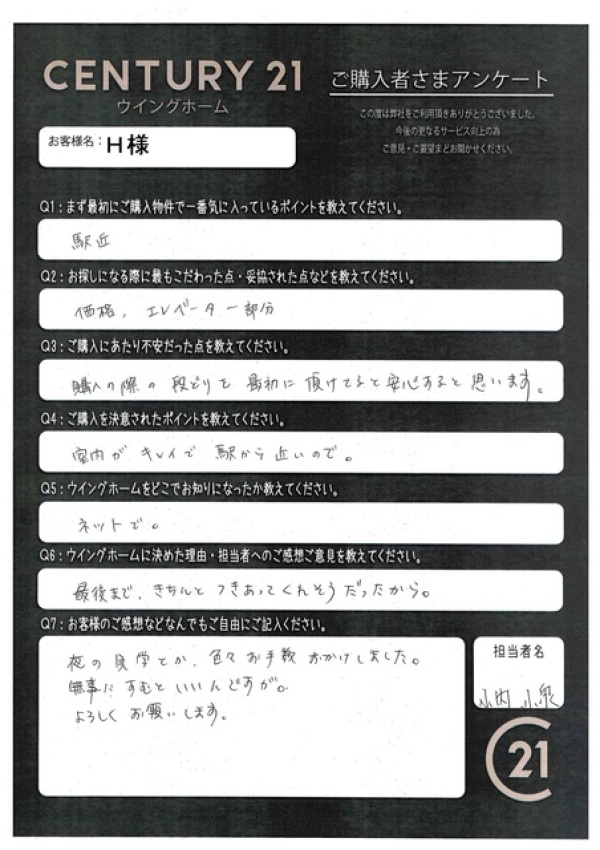 CENTURY 21
ウイングホーム
ご購入者さまアンケート
この度は弊社をご利用頂きありがとうございました。
今後の更なるサービス向上の為
ご意見・ご要望をお聞かせください。
お客様名：H様
Q1：まず最初にご購入物件で一番気に入っているポイントを教えてください。
駅近
Q2：お探しになる際に最もこだわった点・妥協された点などを教えてください。
価格、エレベーター部分
Q3：ご購入にあたり不安だった点を教えてください。
購入の際の段どりを最初に頂けてると安心すると思います。
Q4：ご購入を決意されたポイントを教えてください。
室内がキレイで駅から近いので。
Q5：ウイングホームをどこでお知りになったか教えてください。
ネットで。
Q6：ウイングホームに決めた理由・担当者へのご感想ご意見を教えてください。
最後まで、きちんとつきあってくれそうだったから。
Q7：お客様のご感想などなんでもご自由にご記入ください。
夜の見学とか、色々お手数おかけしました。
無事にすむといいんですが。
よろしくお願いします。
担当者名
小内 小泉
C21